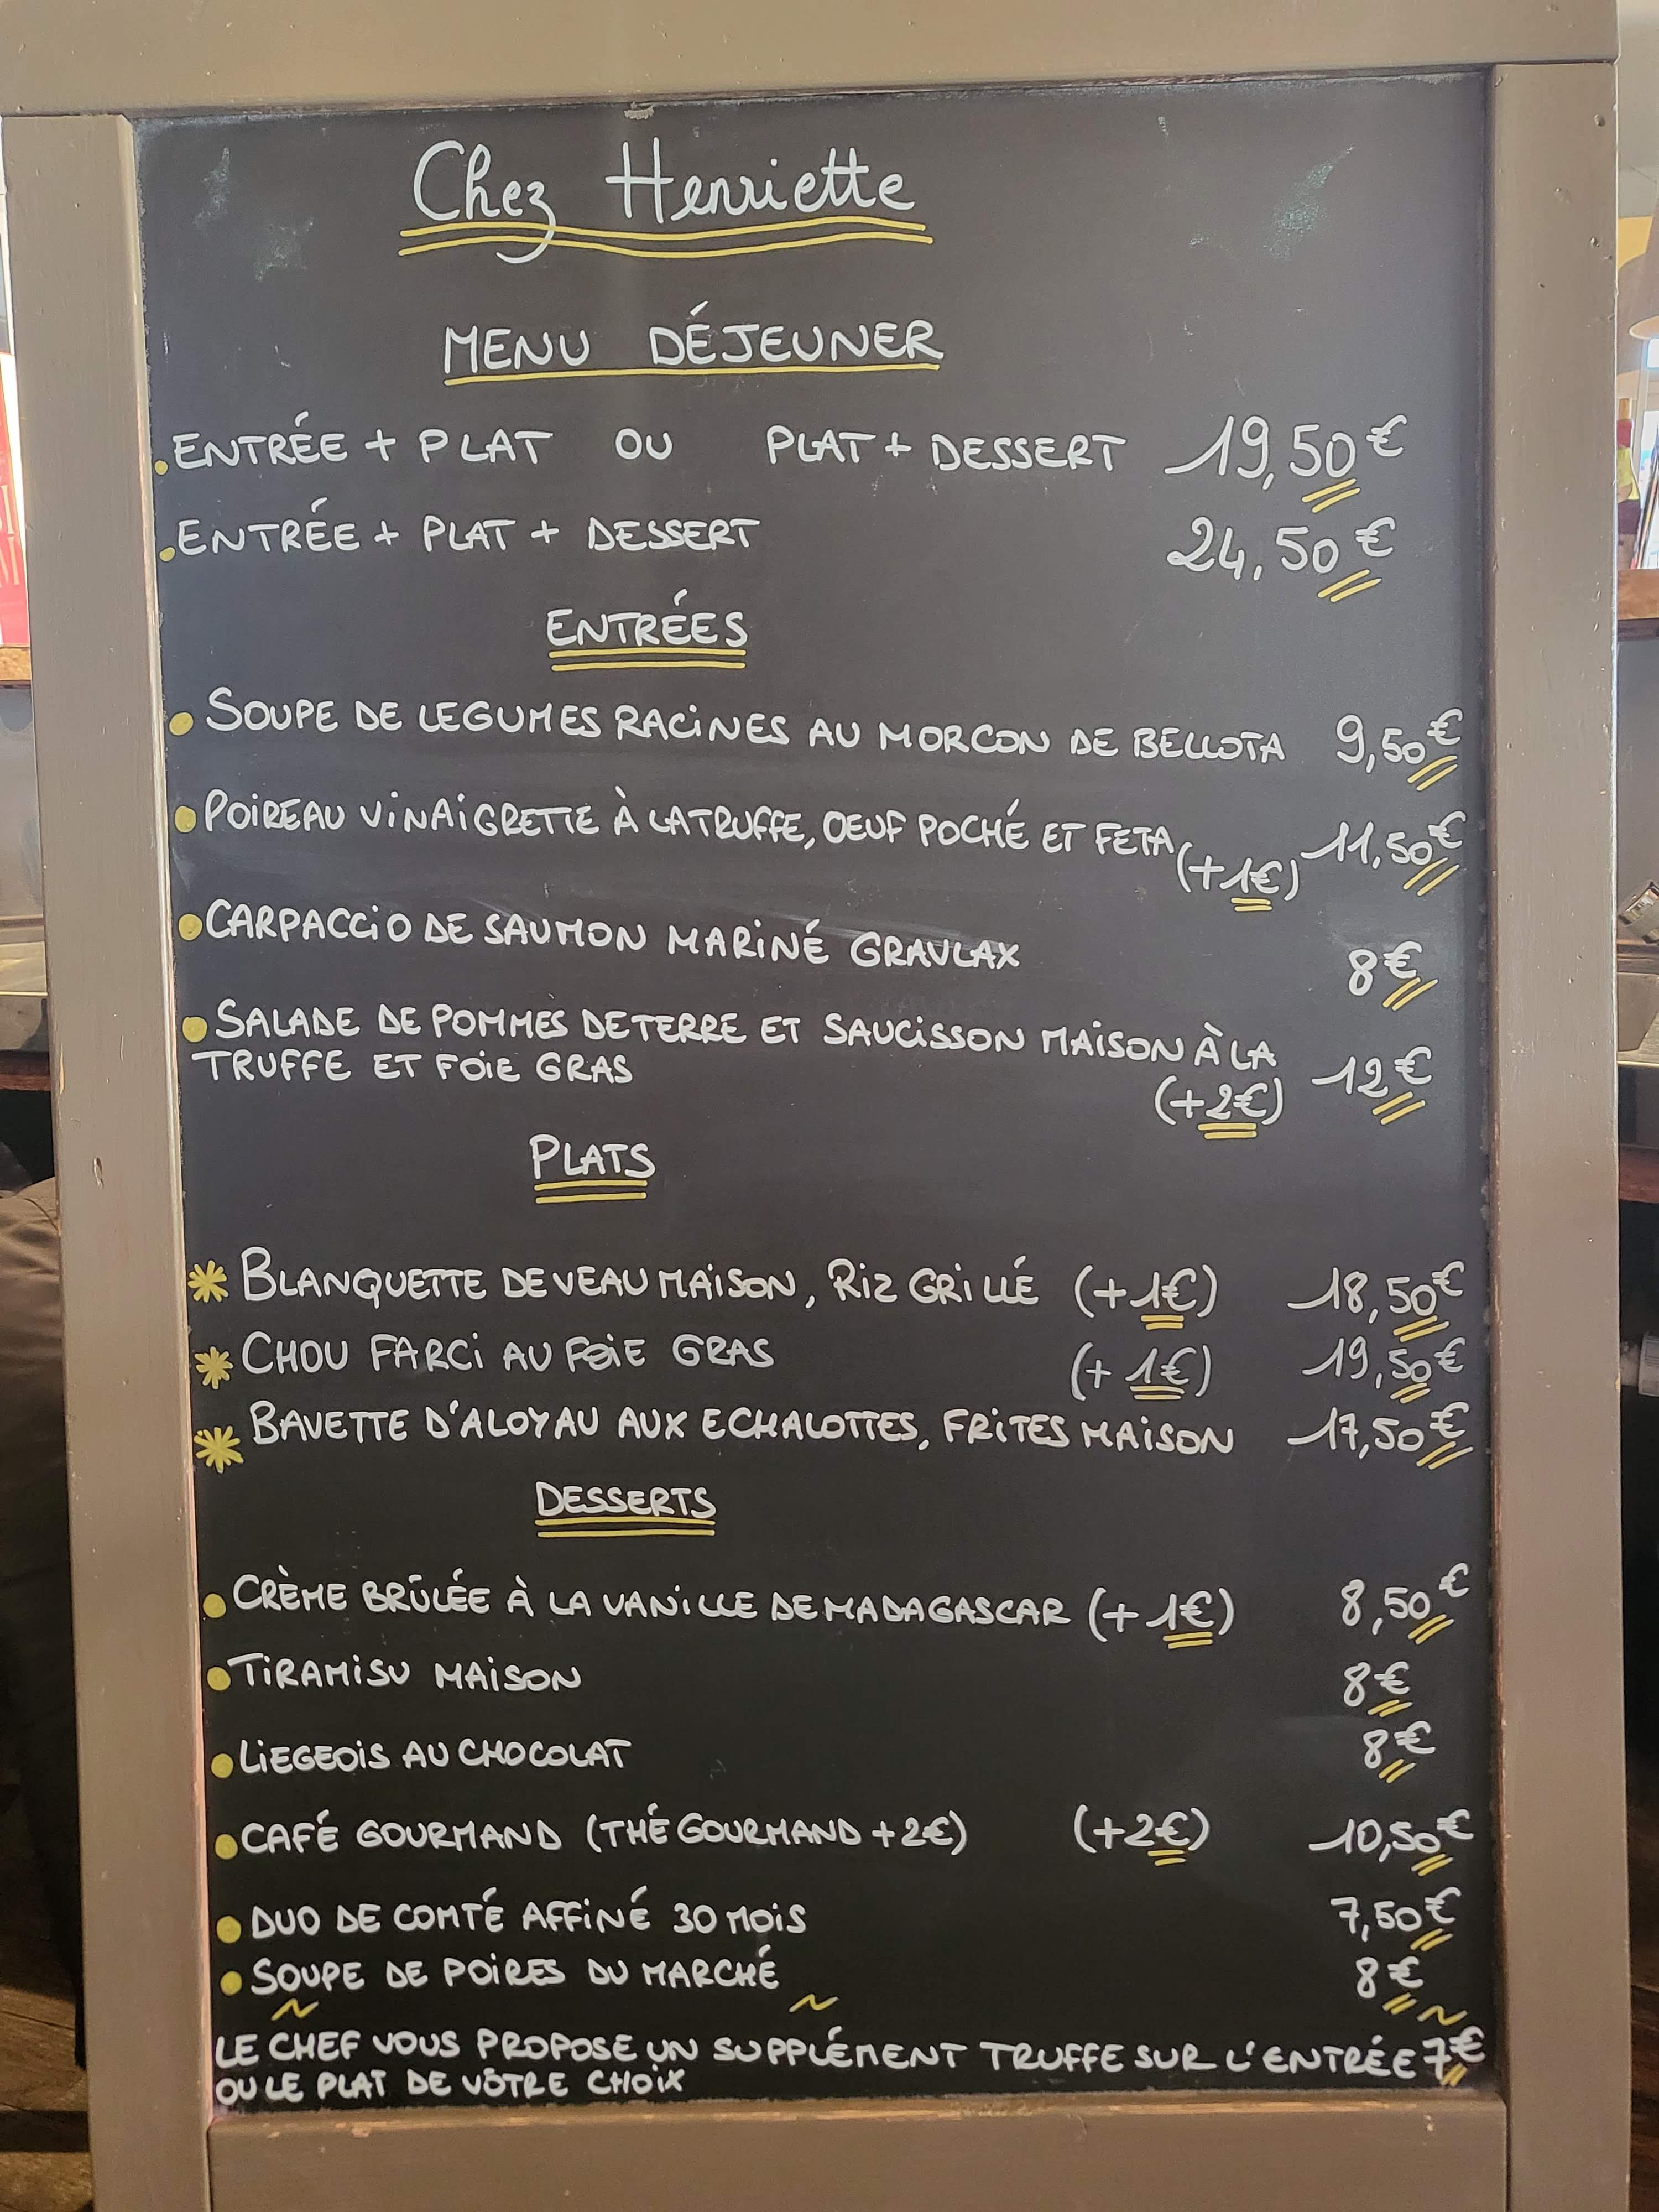 Chez Henriette
MENU DÉJEUNER
.ENTRÉE + PLAT OU PLAT + DESSERT 19,50€
.ENTRÉE + PLAT + DESSERT 24,50€
ENTRÉES
• SOUPE DE LEGUMES RACINES AU MORCON DE BELLOTA 9,50€
• POIREAU VINAIGRETTE À LA TRUFFE, OEUF POCHÉ ET FETA (+1€) 11,50€
• CARPACCIO DE SAUMON MARINÉ GRAVLAX 8€
• SALADE DE POMMES DE TERRE ET SAUCISSON MAISON À LA
TRUFFE ET FOIE GRAS (+2€) 12€
PLATS
* BLANQUETTE DE VEAU MAISON, RIZ GRILLÉ (+1€) 18,50€
* CHOU FARCI AU FOIE GRAS (+1€) 19,50€
* BAVETTE D'ALOYAU AUX ECHALOTTES, FRITES MAISON 17,50€
DESSERTS
• CRÈME BRÛLÉE À LA VANILLE DE MADAGASCAR (+1€) 8,50€
• TIRAMISU MAISON 8€
• LIEGEOIS AU CHOCOLAT 8€
• CAFÉ GOURMAND (THÉ GOURMAND +2€) (+2€) 10,50€
• DUO DE COMTÉ AFFINÉ 30 MOIS 7,50€
• SOUPE DE POIRES DU MARCHÉ 8€
LE CHEF VOUS PROPOSE UN SUPPLÉMENT TRUFFE SUR L'ENTRÉE 7€
OU LE PLAT DE VÔTRE CHOIX